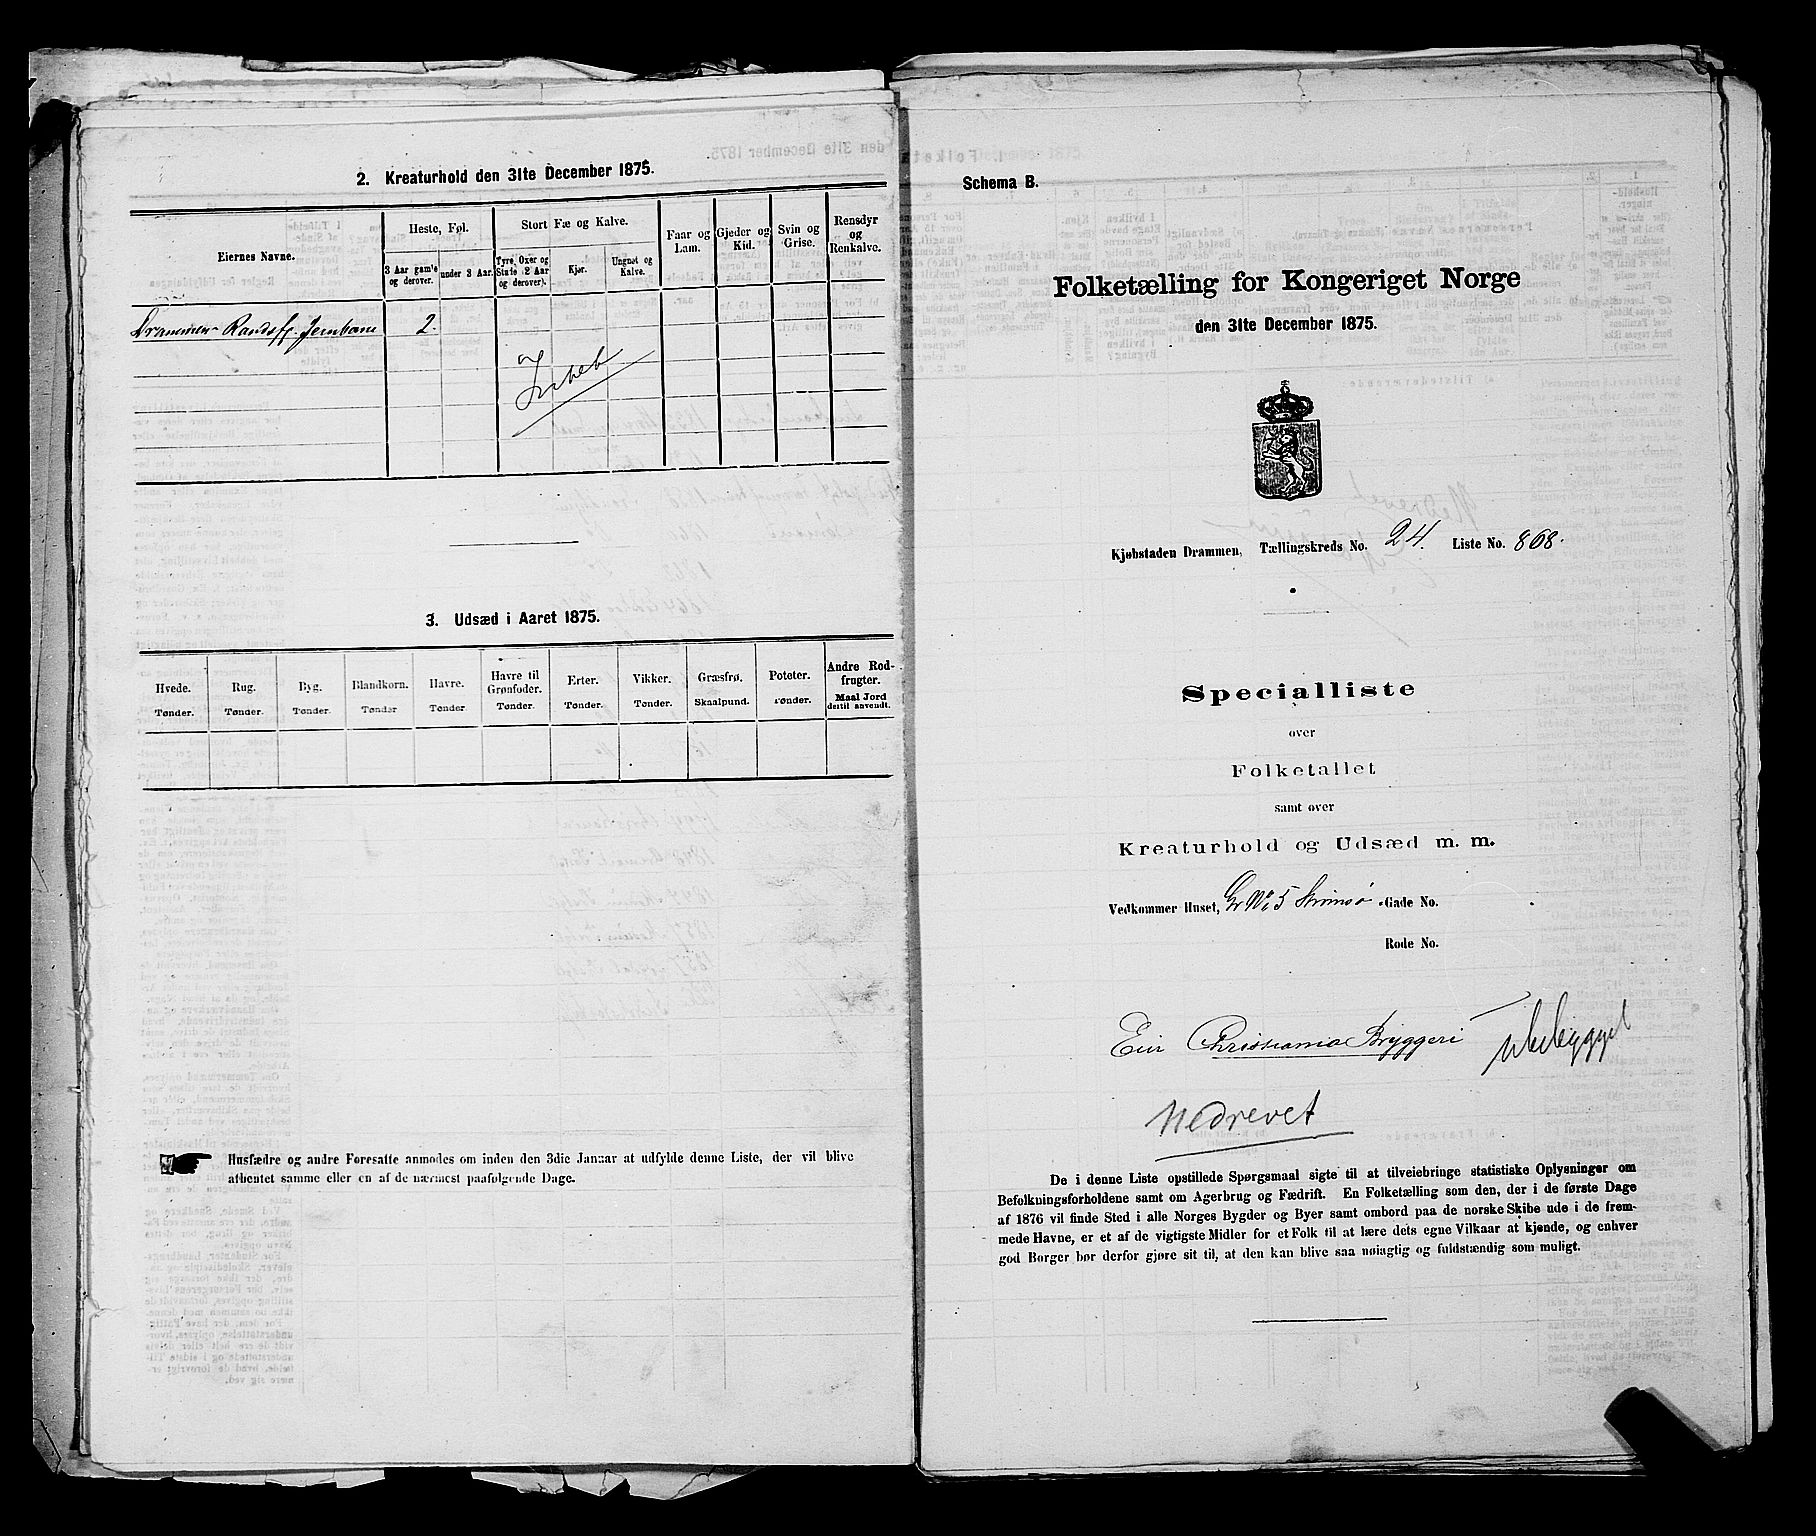 2. Kreaturhold den 31te December 1875.
Eiernes Navne.
Heste, Føl.
Stort Fæ og Kalve.
Faar og Lam.
Gjeder og Kid.
Svin og Grise.
Rensdyr og Renkalve.
3 Aar gamle og derover.
under 3 Aar.
Tyre, Oxer og Stude (2 Aar og derover).
Kjør.
Ungnøt og Kalve.
Drammen-Randsfj. Jernbane 2.
3. Udsæd i Aaret 1875.
Hvede. Rug. Byg. Blandkorn. Havre. Havre til Grønfoder. Erter. Vikker. Græsfrø. Poteter. Andre Rodfrugter.
Tønder. Tønder. Tønder. Tønder Tønder. Tønder. Tønder. Tønder. Skaalpund. Tønder. Maal Jord dertil anvendt.
Husfædre og andre Foresatte anmodes om inden den 3die Januar at udfylde denne Liste, der vil blive
afhentet samme eller en af de nærmest paafølgende Dage.
Schema B.
Folketælling for Kongeriget Norge
den 31te December 1875.
Kjøbstaden Drammen, Tællingskreds No. 24. Liste No. 868.
Specialliste
over
Folketallet
samt over
Kreaturhold og Udsæd m. m.
Vedkommer Huset, Gr No 5 Strømsø Gade No.
Rode No.
Eier Christiania Bryggeri
Ubebygget
Nedrevet
De i denne Liste opstillede Spørgsmaal sigte til at tilveiebringe statistiske Oplysninger om
Befolkningsforholdene samt om Agerbrug og Fædrift. En Folketælling som den, der i de første Dage
af 1876 vil finde Sted i alle Norges Bygder og Byer samt ombord paa de norske Skibe ude i de frem-
mede Havne, er et af de vigtigste Midler for et Folk til at lære dets egne Vilkaar at kjende, og enhver
god Borger bør derfor gjøre sit til, at den kan blive saa nøiagtig og fuldstændig som muligt.